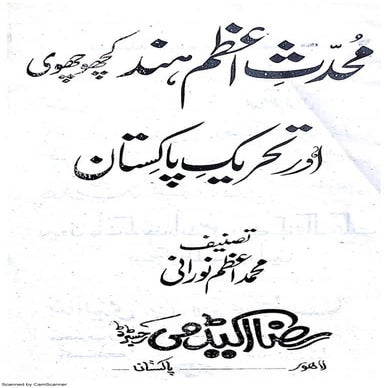 محدّثِ اعظم ہند کچھوچھوی
اور تحریکِ پاکستان
تصنیف
محمد اعظم نورانی
رضا اکیڈمی رجسٹرڈ
لاہور پاکستان
Scanned by CamScanner